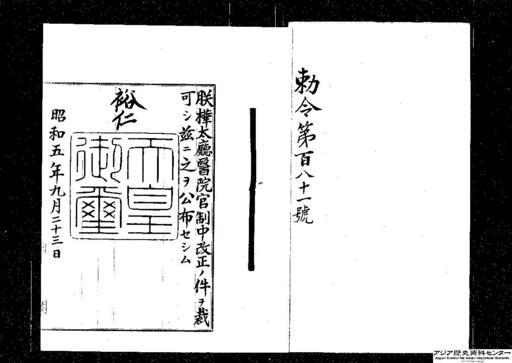 勅令第百八十一號
朕樺太廳醫院官制中改正ノ件ヲ裁
可シ玆ニ之ヲ公布セシム
裕仁
天皇
御璽
昭和五年九月二十三日
アジア歴史資料センター
Japan Center for Asian Historical Records